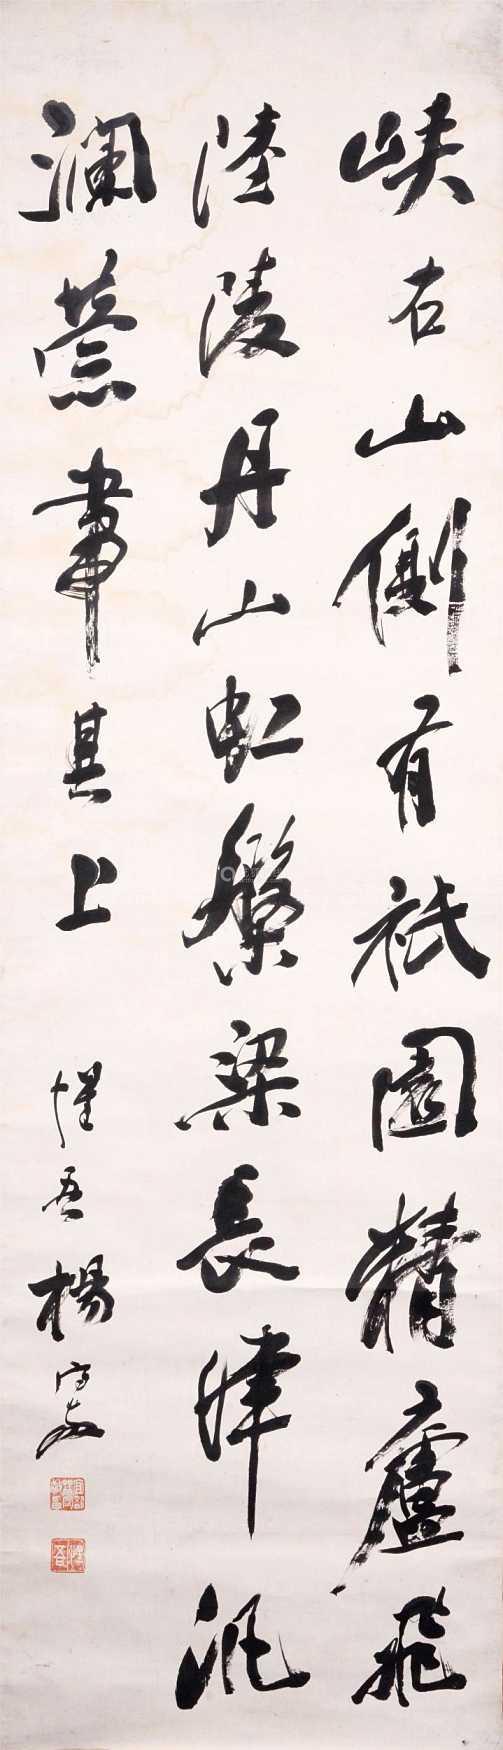 峽右山側有祇園精廬飛
陸陵丹山虹盤梁長津汎
瀾縈帶其上
惺吾楊守敬